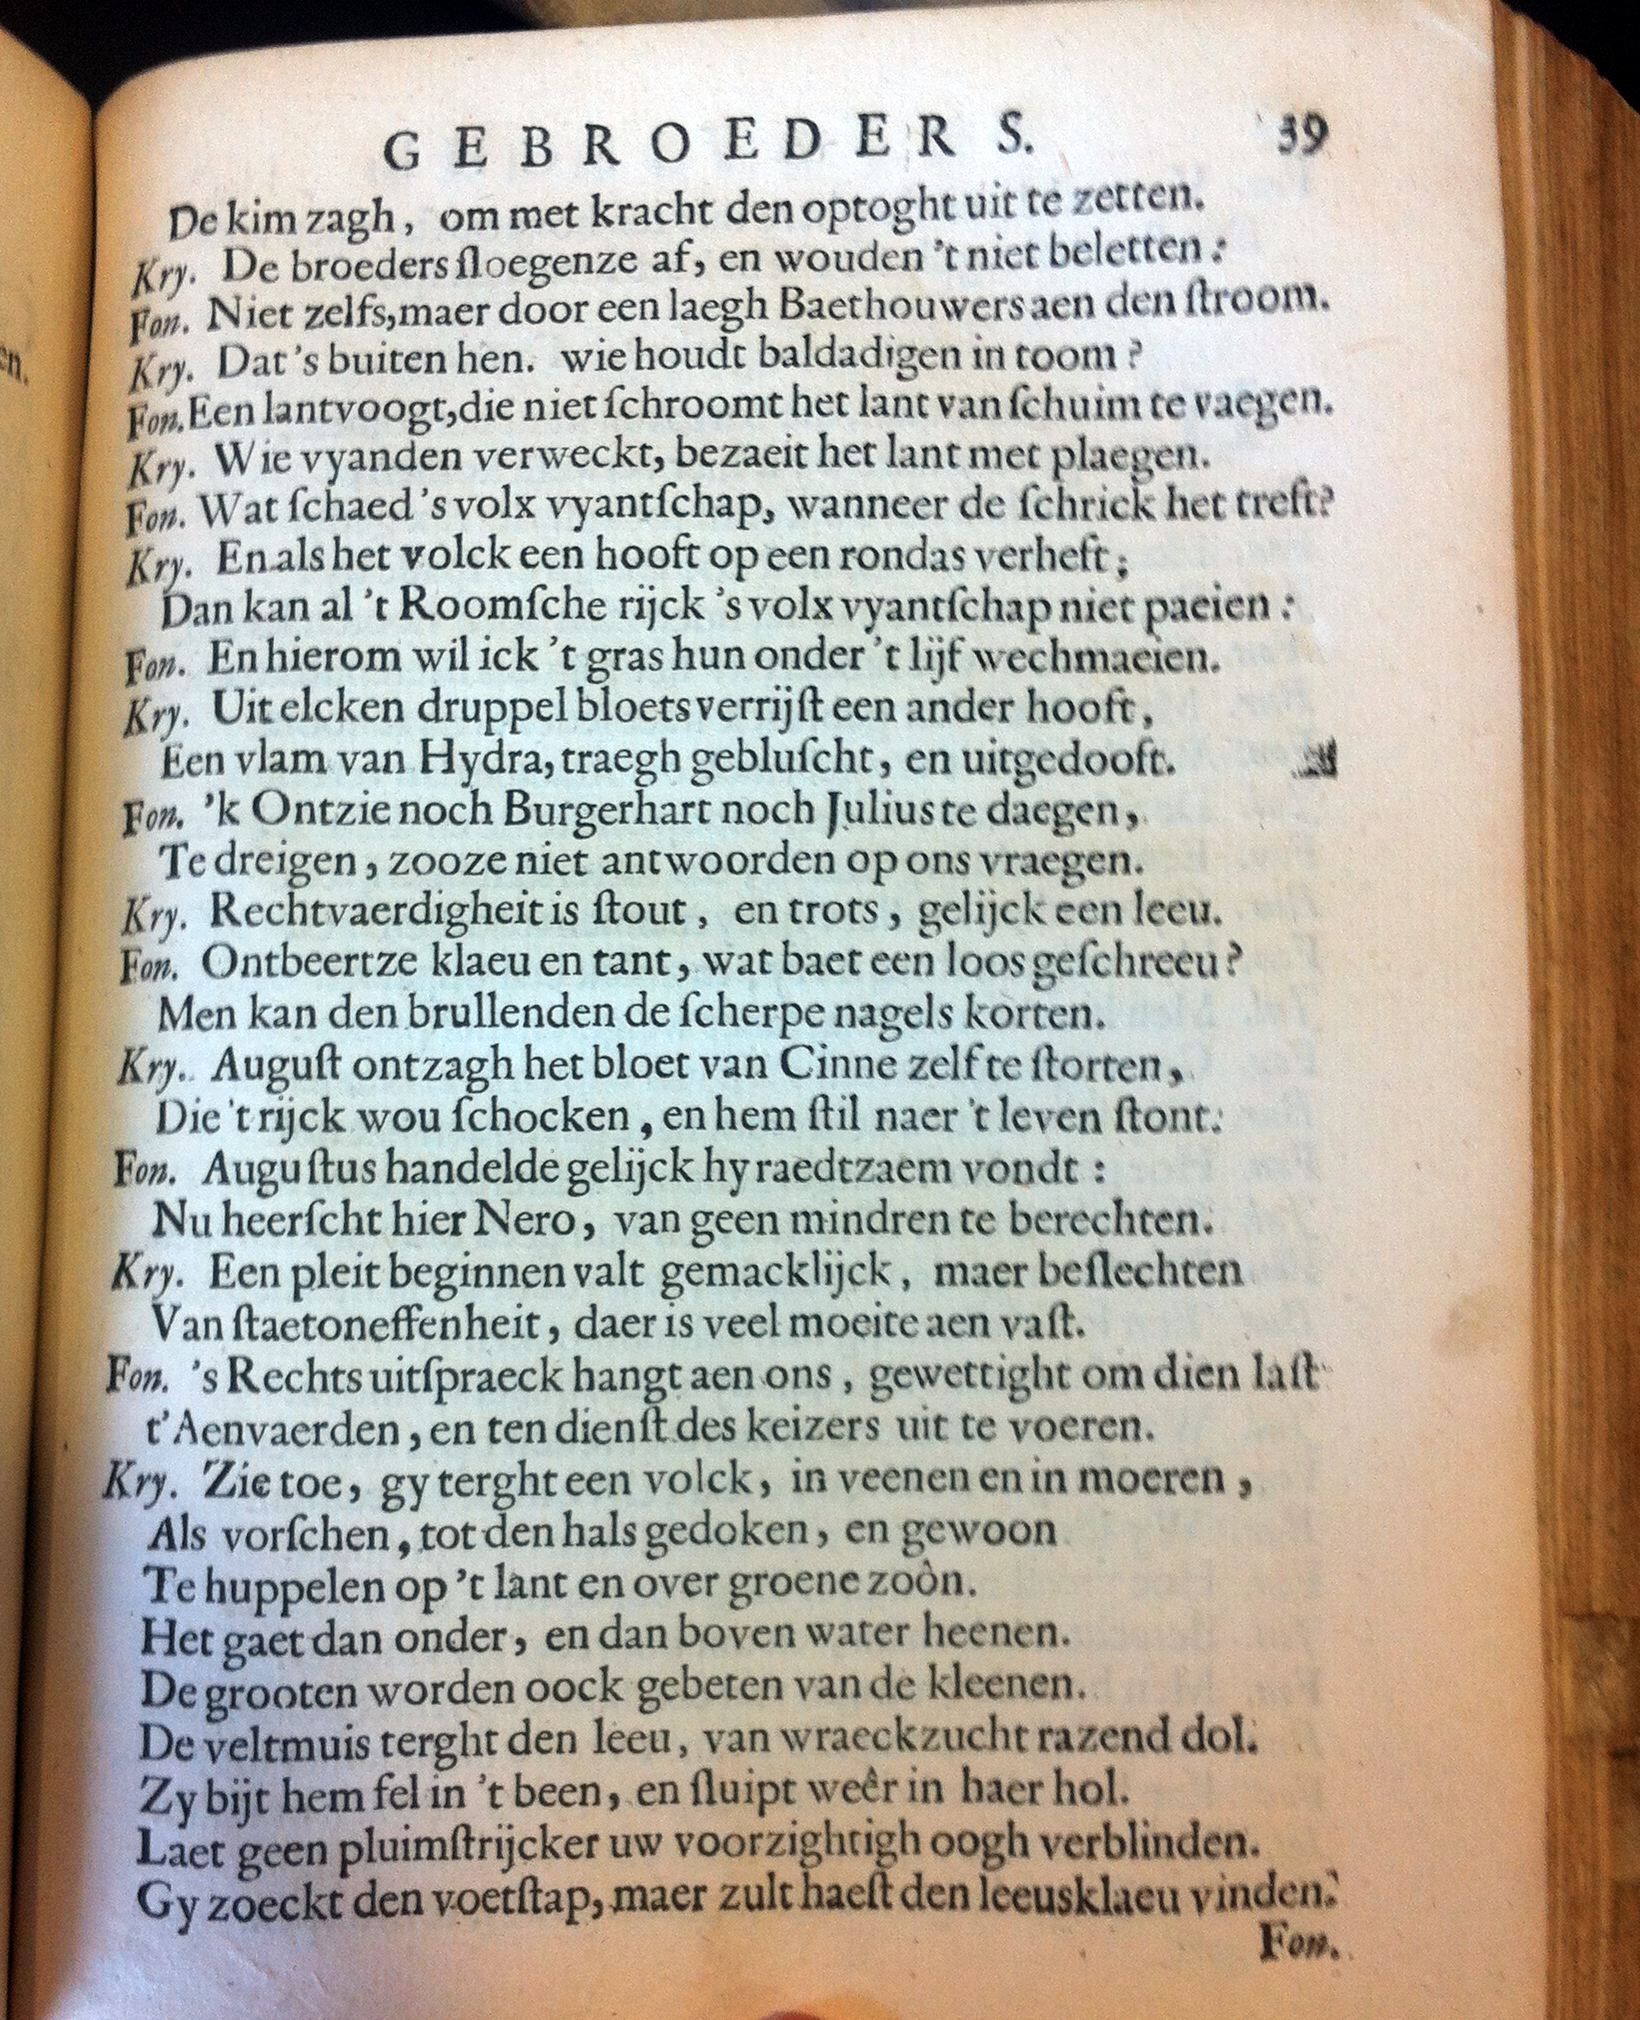 GEBROEDERS. 39
De kim zagh, om met kracht den optoght uit te zetten.
Kry. De broeders ſloegenze af, en wouden 't niet beletten:
Fon. Niet zelfs, maer door een laegh Baethouwers aen den ſtroom.
Kry. Dat's buiten hen. wie houdt baldadigen in toom?
Fon. Een lantvoogt, die niet ſchroomt het lant van ſchuim te vaegen.
Kry. Wie vyanden verweckt, bezaeit het lant met plaegen.
Fon. Wat ſchaed 's volx vyantſchap, wanneer de ſchrick het treft?
Kry. En als het volck een hooft op een rondas verheft;
Dan kan al 't Roomſche rijck 's volx vyantſchap niet paeien:
Fon. En hierom wil ick 't gras hun onder 't lijf wechmaeien.
Kry. Uit elcken druppel bloets verrijſt een ander hooft,
Een vlam van Hydra, traegh gebluſcht, en uitgedooft.
Fon. 'k Ontzie noch Burgerhart noch Julius te daegen,
Te dreigen, zooze niet antwoorden op ons vraegen.
Kry. Rechtvaerdigheit is ſtout, en trots, gelijck een leeu.
Fon. Ontbeertze klaeu en tant, wat baet een loos geſchreeu?
Men kan den brullenden de ſcherpe nagels korten.
Kry. Auguſt ontzagh het bloet van Cinne zelf te ſtorten,
Die 't rijck wou ſchocken, en hem ſtil naer 't leven ſtont.
Fon. Auguſtus handelde gelijck hy raedtzaem vondt:
Nu heerſcht hier Nero, van geen mindren te berechten.
Kry. Een pleit beginnen valt gemacklijck, maer beſlechten
Van ſtaetoneffenheit, daer is veel moeite aen vaſt.
Fon. 's Rechts uitſpraeck hangt aen ons, gewettight om dien laſt
t'Aenvaerden, en ten dienſt des keizers uit te voeren.
Kry. Zie toe, gy terght een volck, in veenen en in moeren,
Als vorſchen, tot den hals gedoken, en gewoon
Te huppelen op 't lant en over groene zoôn.
Het gaet dan onder, en dan boven water heenen.
De grooten worden oock gebeten van de kleenen.
De veltmuis terght den leeu, van wraeckzucht razend dol.
Zy bijt hem fel in 't been, en ſluipt weêr in haer hol.
Laet geen pluimſtrijcker uw voorzightigh oogh verblinden.
Gy zoeckt den voetſtap, maer zult haeſt den leeusklaeu vinden.
Fon.